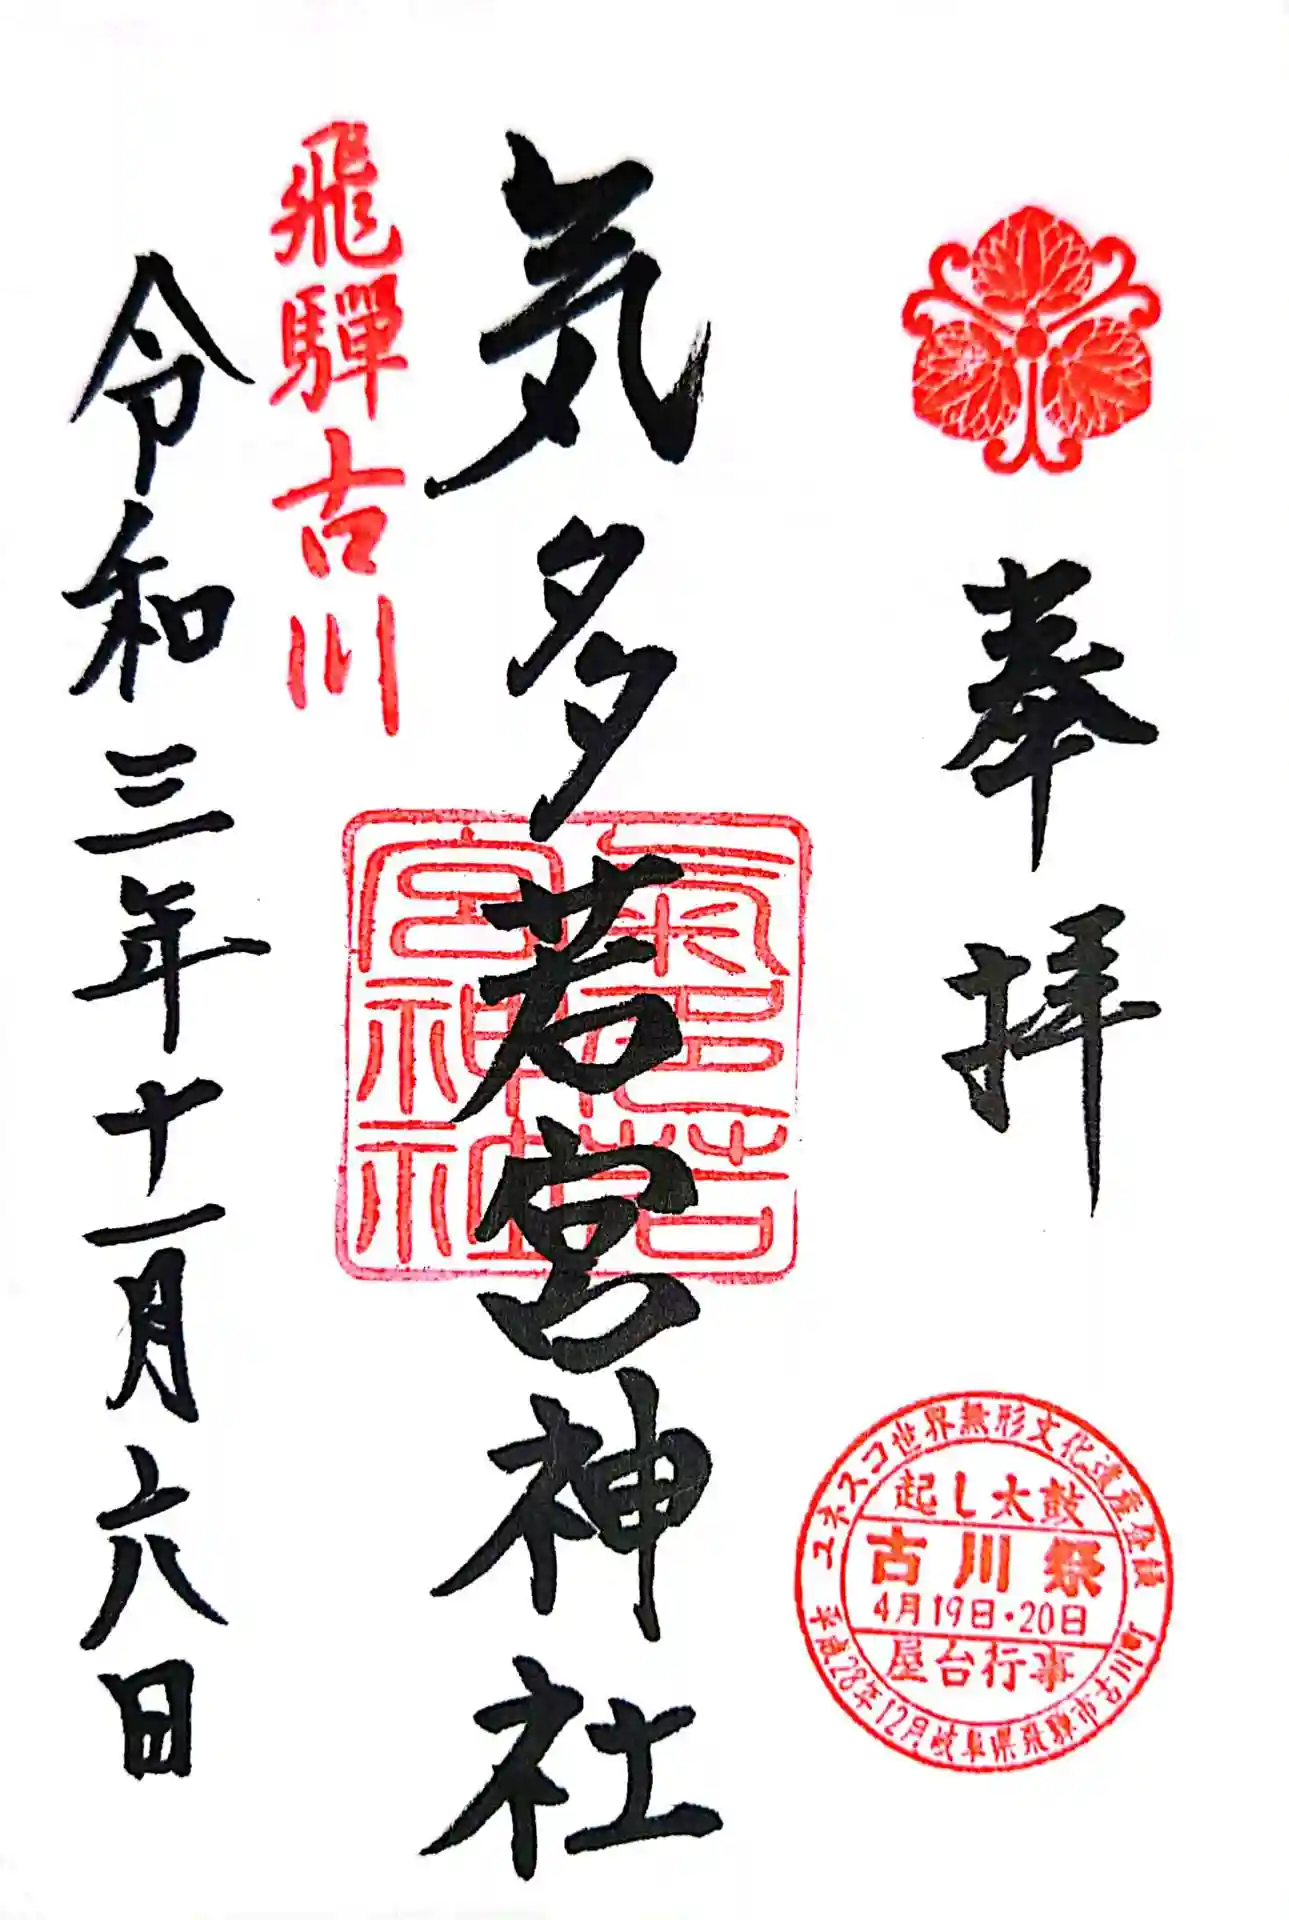 奉拝
ユネスコ世界無形文化遺産登録
起し太鼓
古川祭
4月19日・20日
屋台行事
平成28年12月岐阜県飛騨市古川町
気多若宮神社
氣多若
宮神社
飛驒古川
令和三年十一月六日